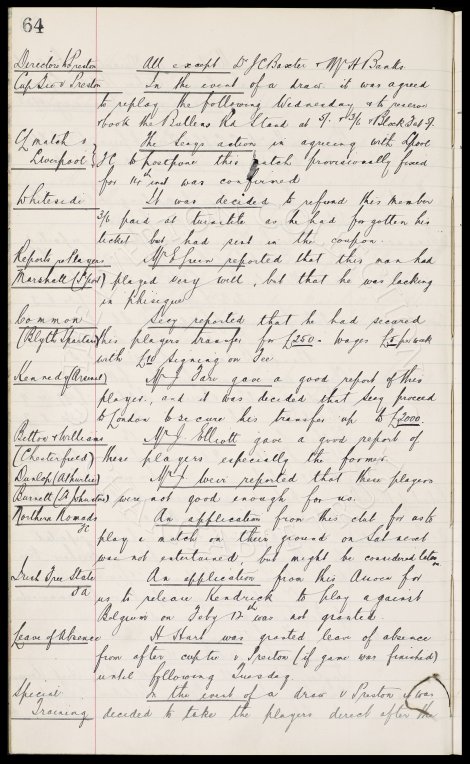 64
Directors to Preston All except Dr J C Baxter & Mr H Banks
Cup Tie v Preston In the event of a draw it was agreed
to replay the following Wednesday & to reserve
& book the Bullens Rd Stand at 5/- & 3/6 & Block Seats
CL match v The Secys action in agreeing with Lpool
Liverpool F.C to postpone this match provisionally fixed
for 14th inst was confirmed
Whiteside It was decided to refund this member
3/6 paid at turnstile as he had forgotten his
ticket but had sent in the coupon.
Reports re Players Mr E Green reported that this man had
Marshall (S'port) played very well, but that he was lacking
in physique
Common Secy reported that he had secured
(Blyth Spartans) this players transfer for £250 - wages £5 per week
with £10 signing on Fee
Kennedy (Arsenal) Mr J Fare gave a good report of this
player, and it was decided that Secy proceed
to London to secure his transfer up to £2000.
Betton & Williams Mr J. Elliott gave a good report of
(Chesterfield) these players especially the former.
Dunlop (Airdrie) Mr reported that these players
Burnett (St Johnstone) were not good enough for us.
Northern Nomads An application from this club for us to
FC play a match on their ground on Sat next
was not entertained, but might be considered later on
Irish Free State An application from this Assocn for
F.A us to release Kendrick to play against
Belgium on Feby 12th was not granted.
Leave of Absence H Hart was granted leave of absence
from after cup tie v Preston (if game was finished)
until following Tuesday.
Special In the event of a draw v Preston it was
Training decided to take the players direct after the